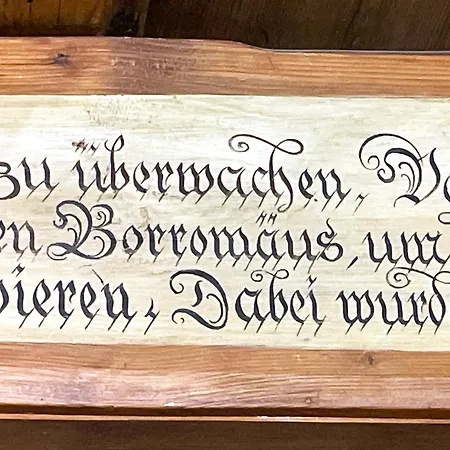 zu überwachen. Vo
en Borromäus, um
ieren. Dabei wurd